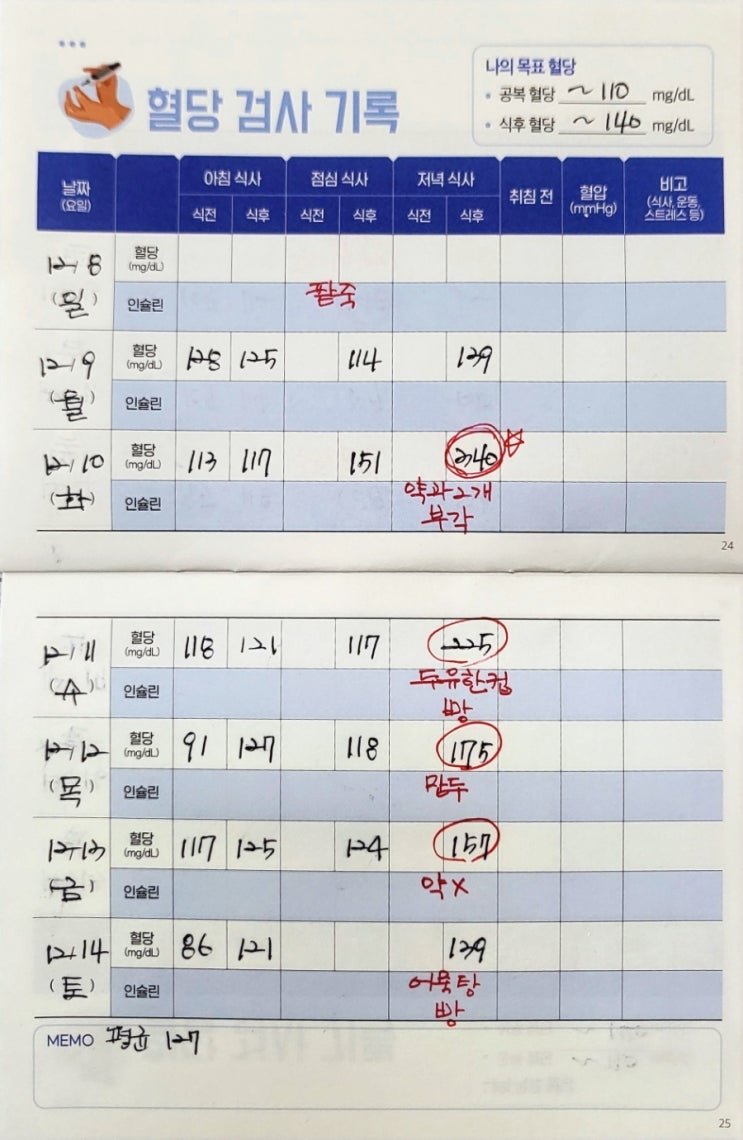 혈당 검사 기록
나의 목표 혈당
• 공복 혈당 ~ 110 mg/dL
• 식후 혈당 ~ 140 mg/dL
날짜 (요일) 아침 식사 점심 식사 저녁 식사 취침 전 혈압 (mmHg) 비고 (식사, 운동, 스트레스 등)
식전 식후 식전 식후 식전 식후
12/8 혈당 (mg/dL)
(일) 인슐린 팥죽
12/9 혈당 (mg/dL) 128 125 114 129
(월) 인슐린
12/10 혈당 (mg/dL) 113 117 151 240
(화) 인슐린 약과 2개
부각
24
12/11 혈당 (mg/dL) 118 121 117 225
(수) 인슐린 두유한컵
빵
12/12 혈당 (mg/dL) 91 127 118 175
(목) 인슐린 만두
12/13 혈당 (mg/dL) 117 125 124 157
(금) 인슐린 약 X
12/14 혈당 (mg/dL) 86 121 129
(토) 인슐린 어묵탕
빵
MEMO 평균 127
25